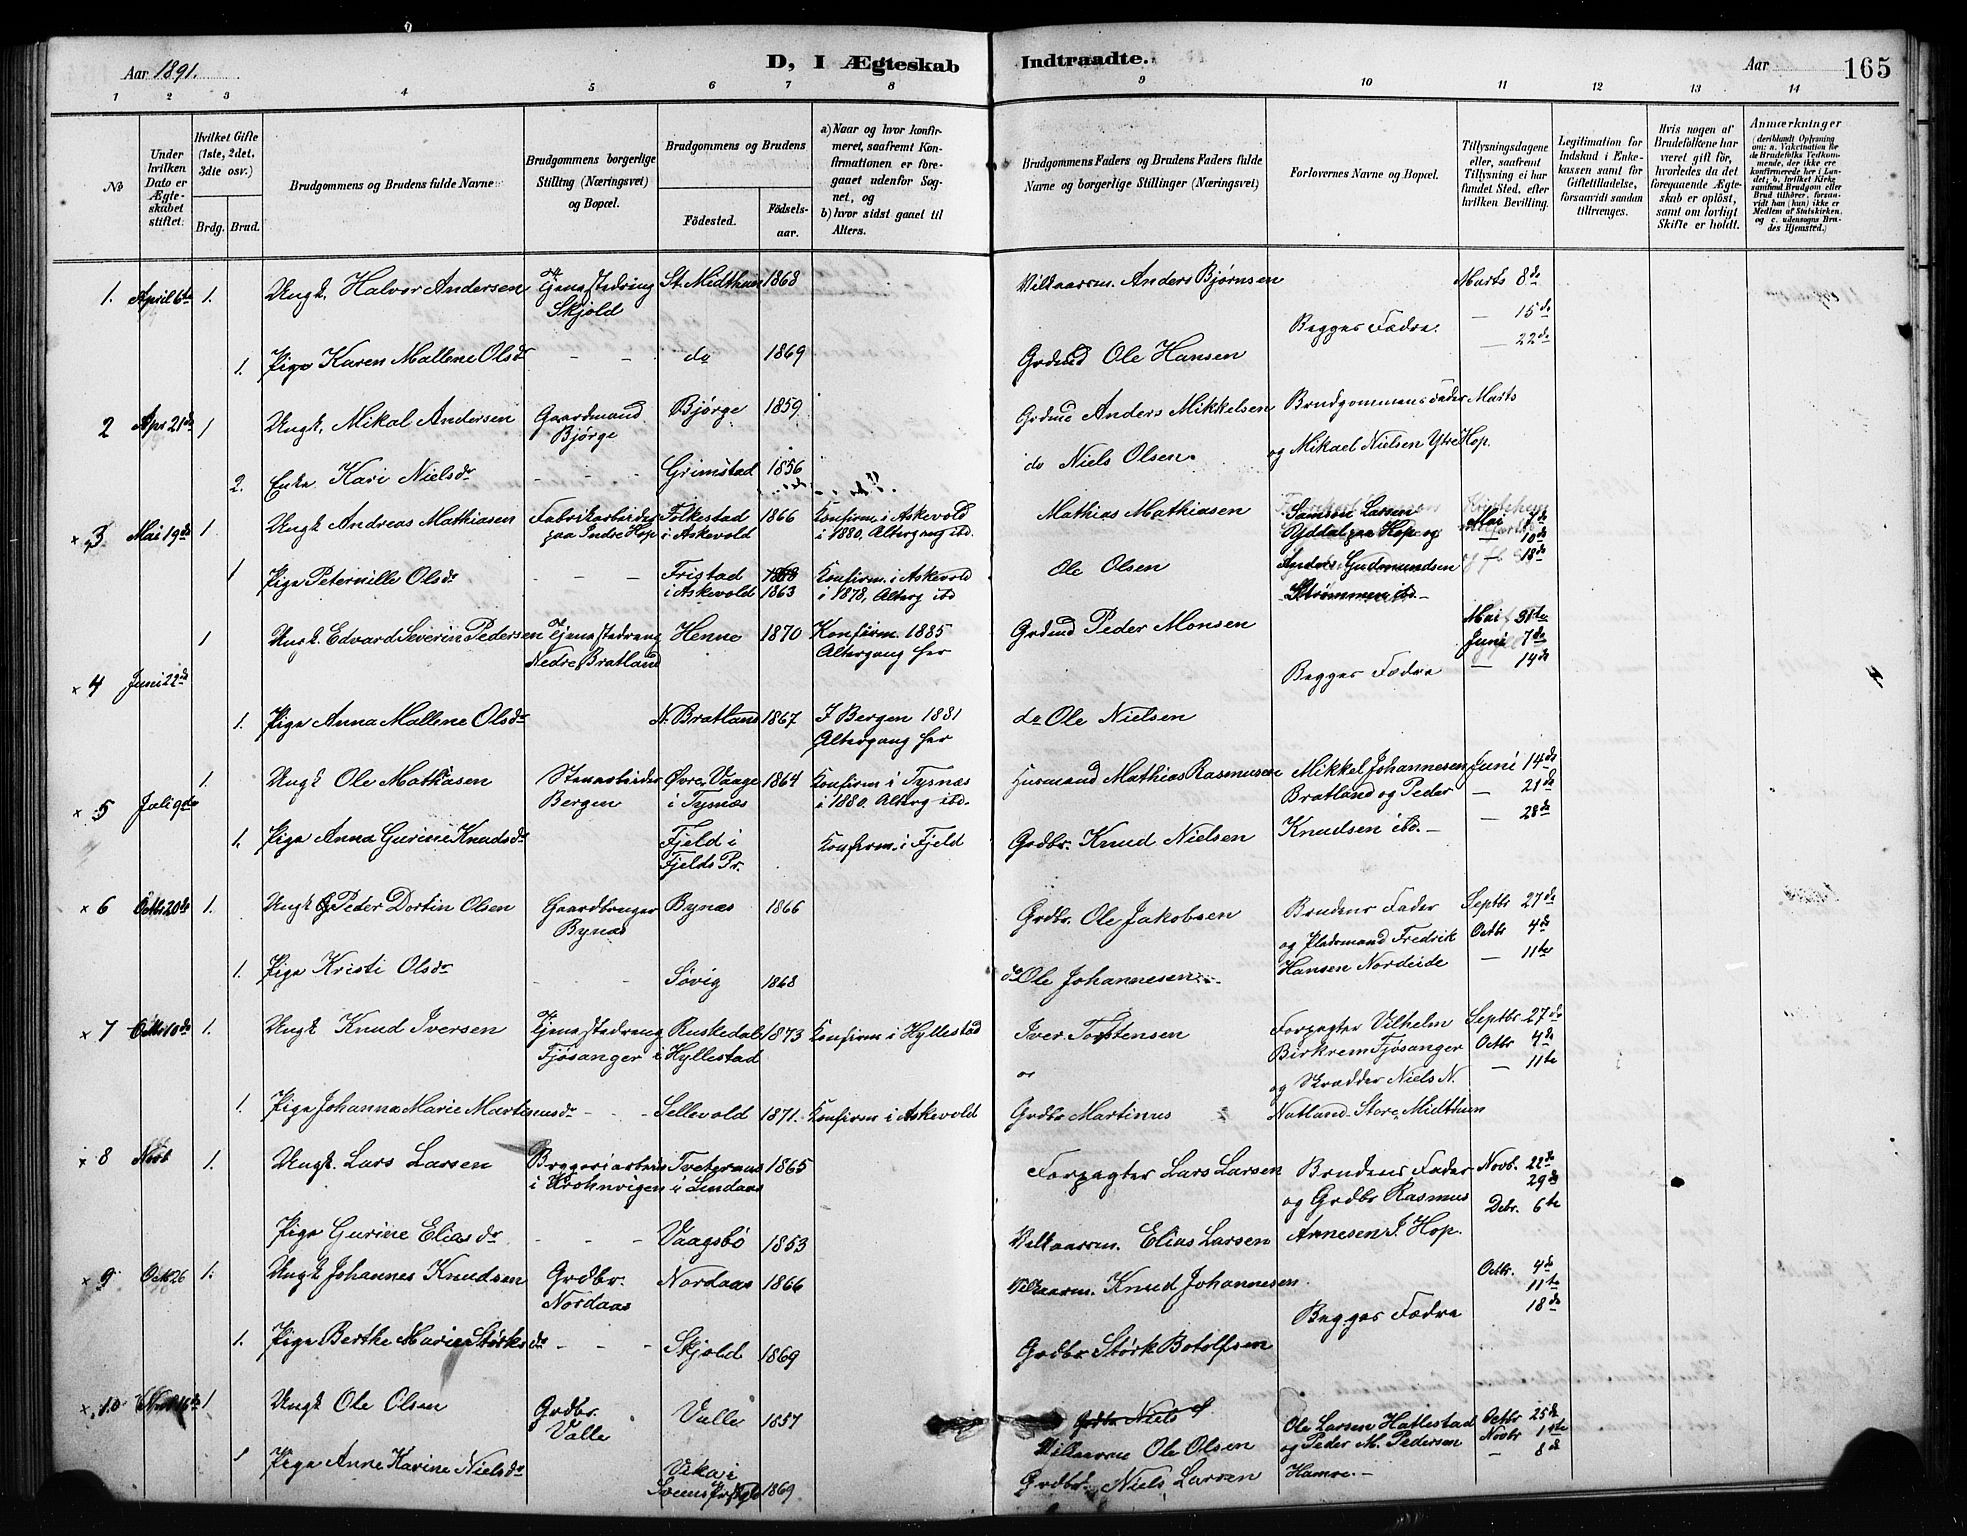 Aar 1891.
D, I Ægteskab Indtraadte.
Aar
165
1 2 3 4 5 6 7 8 9 10 11 12 13 14
No
Under hvilken Dato er Ægteskabet stiftet.
Hvilket Gifte (1ste, 2det, 3die osv.)
Brdg. Brud.
Brudgommens og Brudens fulde Navne
Brudgommens borgerlige Stilling (Næringsvei) og Bopæl.
Brudgommens og Brudens
Födested. Födsels-aar.
a) Naar og hvor konfirmeret, saafremt Konfirmationen er foregaaet udenfor Sognet, og
b) hvor sidst gaaet til Alters.
Brudgommens Faders og Brudens Faders fulde Navne og borgerlige Stillinger (Næringsvei)
Forlovernes Navne og Bopæl.
Tillysningsdagene eller, saafremt Tillysning ei har fundet Sted, efter hvilken Bevilling.
Legitimation for Indskud i Enkekassen samt for Giftetilladelse, forsaavidt saadan tiltrænges.
Hvis nogen af Brudefolkene har været gift för, hvorledes da det foregaaende Ægteskab er oplöst, samt om lovligt Skifte er holdt.
Anmærkninger (deriblandt Oplysning om: a. Vakcination for de Brudefolks Vedkommende, der ikke ere konfirmerede her i Landet; b. hvilket Kirkesamfund Brudgom eller Brud tilhörer, forsaavidt han (hun) ikke er Medlem af Statskirken, og c. udensogns Brudes Hjemsted.)
1. April 6te 1. Ungk. Halvor Andersen Tjenestedreng Skjold St. Midthun 1868 Vilkaarsm. Anders Bjørnsen Begges Fædre. Marts 8de
— 15de
— 22de
1. Pige Karen Mallene Olsdr — — do 1869 Grdmd Ole Hansen
2 Apr 21de 1 Ungk. Mikal Andersen Gaardmand Bjørge Bjørge 1859 Grdmd Anders Mikkelsen Brudgommens Fader Marts
og Mikael Nielsen Ytre Hop.
2. Enke Kari Nielsdr — — — Grimstad 1856 do Niels Olsen.
x 3 Mai 19de 1 Ungk Andreas Mathiasen Fabrikarbeider paa Indre Hop Folkestad i Askevold 1866 Konfirm. i Askevold i 1880. Altergang ibd. Mathias Mathiasen Samson Larsen Øvdal paa Hop og Mai 7de
— 10de
— 18de
1 Pige Peternille Olsdr — — — Fristad i Askevold 1863 Konfirm. i Askevold i 1878, Alterg ibd Ole Olsen Anders Gudmundsen Strømmen ibd.—
x 4 Juni 22de 1 Ungk. Edvard Severin Pedersen Tjenestedreng Nedre Bratland Henne 1870 Konfirm. 1885 Altergang her Grdmd Peder Monsen Begges Fædre Mai 31te
Juni 7de
— 14de
1. Pige Anna Mallene Olsdr N. Bratland 1867 I Bergen 1881 Altergang her do Ole Nielsen
x 5 Juli 9de 1. Ungk Ole Mathiasen Stenarbeider Bergen Øvre Vaage i Tysnæs 1864 Konfirm i Tysnæs i 1880. Alterg ibd. Husmand Mathias Rasmusen Mikkel Johannesen Bratland og Peder Knudsen ibd.— Juni 14de
— 21de
— 28de
1. Pige Anna Gurine Knudsdr Fjeld i Fjelds Pr. Konfirm. i Fjeld Grdbr. Knud Nielsen
x 6 Octbr 20de 1. Ungk Peder Dortin Olsen Gaardbruger Bynæs Bynæs 1866 Grdbr. Ole Jakobsen Brudens Fader og Pladsmand Fredrik Hansen Nordeide Septbr 27de
Octbr 4de
— 11te
1. Pige Kristi Olsdr — — Søvig 1868 do Ole Johannesen
x 7 Octbr 10de 1. Ungk Knud Iversen Tjenestedreng Fjøsanger Ruskedal i Hyllestad 1873 Konfirm i Hyllestad Iver Torstensen Forpagter Vilhelm Birkrem Fjøsanger og Skrædder Niels N. Natland Store Midthun Septbr 27de
Octbr 4de
— 11te
1. Pige Johanna Marie Martinusdr — — Sellevold 1871. Konfirm i Askevold Grdbr Martinus
x 8 Novb 1. Ungk. Lars Larsen Bryggeriarbeider i Krohnvigen Tveternæs i Lindaas 1865 Forpagter Lars Larsen Brudens Fader og Grdbr Rasmus Arnesen I. Hop. Novb. 22de
29de
Debr. 6te
Pige Gurine Eliasdr — — — Vaagsbø 1853 Vilkaarsm. Elias Larsen
x 9 Oct 26 1. Ungk Johannes Knudsen Grdbr. Nordaas Nordaas 1866 Vilkaarsm. Knud Johannesen. Begges Fædre Octbr. 4de
11te
18de
1. Pige Berthe Marie Størksdr — — — Skjold 1869 Grdbr Størk Botolfsen
x 10 Nov 16de 1 Ungk Ole Olsen Grdbr. Valle Valle 1857 Grdbr Niels
Vilkaarsm Ole Olsen Ole Larsen Hatlestad og Peder M. Pedersen Hamre.— Octbr 25de
Novbr 1ste
— 8de
1 Pige Anne Karine Nielsdr Vika i 1869 Grdbr. Niels Larsen